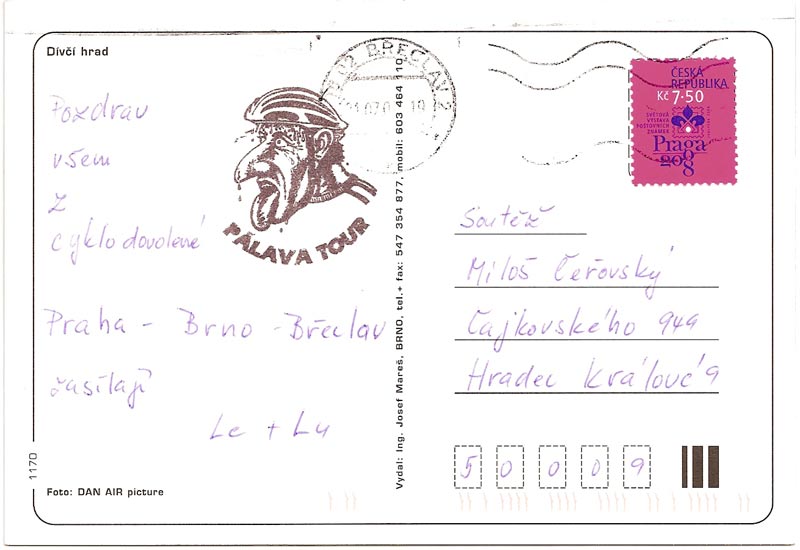 Dívčí hrad
Pozdrav
všem
z
cyklodovolené
Praha - Brno - Břeclav
zasílají
Le + Lu
PÁLAVA TOUR
BŘECLAV 2
ČESKÁ
REPUBLIKA
Kč 7·50
SVĚTOVÁ
VÝSTAVA
POŠTOVNÍCH
ZNÁMEK
Praga
2008
Soutěž
Miloš Čeřovský
Čajkovského 949
Hradec Králové 9
5 0 0 0 9
Vydal: Ing. Josef Mareš, BRNO, tel.+ fax: 547 354 877, mobil: 603 464 110
1170
Foto: DAN AIR picture